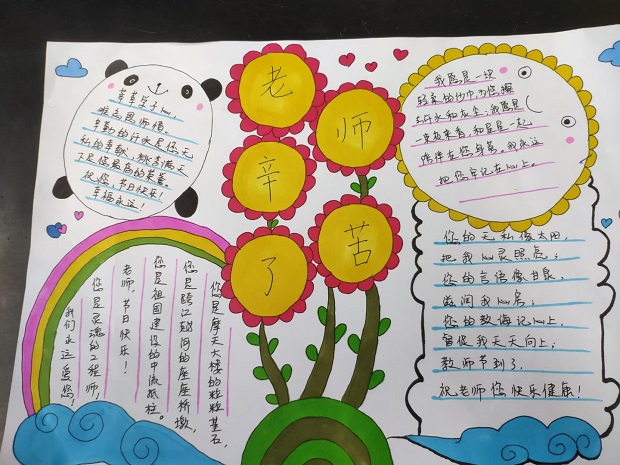 老师辛苦了
莘莘学子心,
难忘恩师情。
辛勤的汗水是您无
私的奉献,桃李满天
下是您最高的荣誉。
祝您:节日快乐!
幸福永远!
我愿是一块
轻柔的纱巾为您擦
去汗水和灰尘;我愿是
一束起来看,和星星一起
陪伴在您身旁。我永远
把您牢记在心上。
您是摩天大楼的粒粒基石,
您是跨江越河的座座桥墩,
您是祖国建设的中流砥柱。
老师,节日快乐!
您是灵魂的工程师,
我们永远爱您!
您的无私像太阳,
把我心灵照亮;
您的言语像甘泉,
滋润我心房;
您的教诲记心上,
督促我天天向上;
教师节到了,
祝老师您快乐健康!